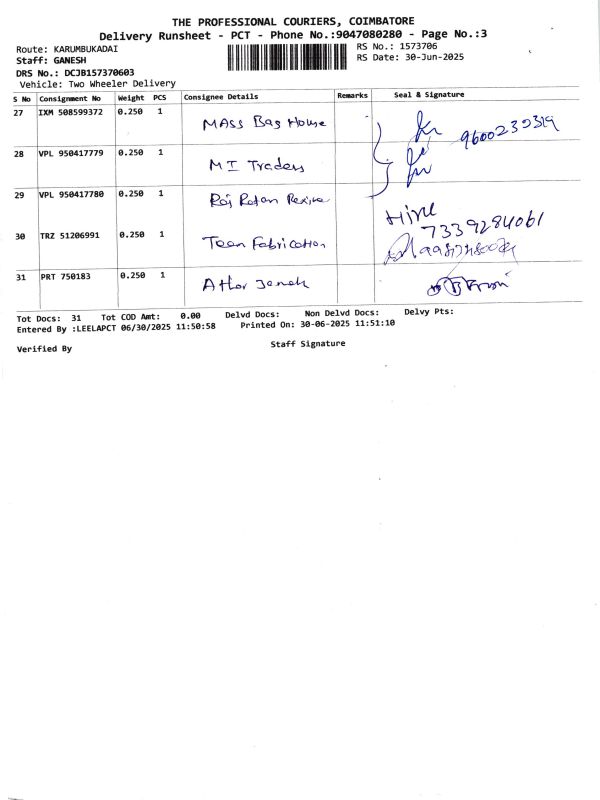 THE PROFESSIONAL COURIERS, COIMBATORE
Delivery Runsheet - PCT - Phone No.:9047080280 - Page No.:3
Route: KARUMBUKADAI
RS No.: 1573706
Staff: GANESH
RS Date: 30-Jun-2025
DRS No.: DCJB157370603
Vehicle: Two Wheeler Delivery
S No Consignment No Weight PCS Consignee Details Remarks Seal & Signature
27 IXM 508599372 0.250 1 MASS Bag House
9600230319
28 VPL 950417779 0.250 1 M I Traders
29 VPL 950417780 0.250 1 Raj Ratan Rexine
7339284061
30 TRZ 51206991 0.250 1 Teen Fabrication
31 PRT 750183 0.250 1
Tot Docs: 31 Tot COD Amt: 0.00 Delvd Docs: Non Delvd Docs: Delvy Pts:
Entered By :LEELAPCT 06/30/2025 11:50:58 Printed On: 30-06-2025 11:51:10
Verified By
Staff Signature